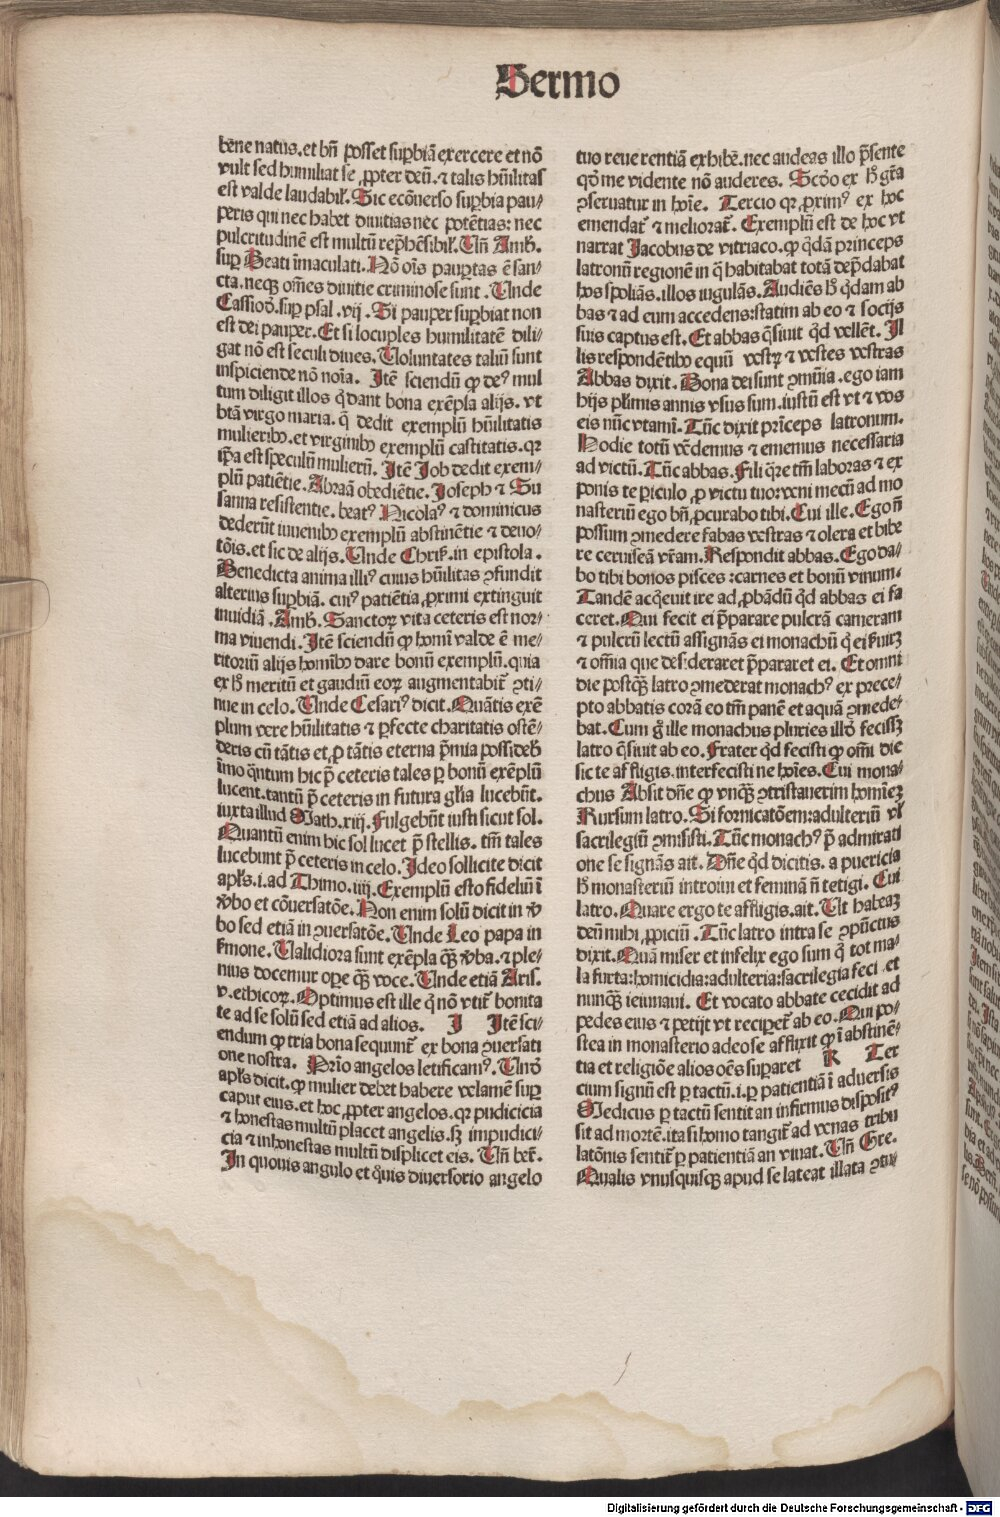 Sermo
bene natus. et bñ posset suꝑbiã exercere et nõ
vult sed humiliat se ꝓpter deũ. ⁊ talis hũilitas
est valde laudabiľ. Sic ecõuerso suꝑbia pau/
peris qui nec habet diuitias nec potẽtias: nec
pulcritudinẽ est multũ rep̃hẽsibiľ. Uñ Amb̃.
suꝑ Beati ĩmaculati. Nõ oĩs pauꝑtas ẽ san/
cta. neqꝫ om̃es diuitie criminose sunt. Unde
Cassiod̃. suꝑ psal. vij. Si pauper suꝑbiat non
est dei pauper. Et si locuples humilitatẽ dili/
gat nõ est seculi diues. Uoluntates taliũ sunt
inspiciende nõ noĩa. Itẽ sciendũ ꝙ deꝰ mul
tum diligit illos q̃ dant bona exẽpla alijs. vt
btã virgo maria. q̃ dedit exemplũ hũilitatis
mulieribꝰ. et virginibꝰ exemplũ castitatis. qꝛ
ip̃a est speculũ mulierũ. Itẽ Job dedit exem/
plũ patiẽtie. Abraã obediẽtie. Joseph ⁊ Su
sanna resistentie. beatꝰ Nicolaꝰ ⁊ dominicus
dederũt iuuenibꝰ exemplũ abstinẽtie ⁊ deuo/
tõis. et sic de alijs. Unde Chris̃. in epistola.
Benedicta anima illiꝰ cuius hũilitas ꝯfundit
alterius suꝑbiã. cuiꝰ patiẽtia ꝓximi extinguit
inuidiã. Amb̃. Sanctoꝝ vita ceteris est nor/
ma viuendi. Itẽ sciendũ ꝙ homĩ valde ẽ me/
ritoriũ alijs homĩbꝰ dare bonũ exemplũ. quia
ex h̃ meritũ et gaudiũ eoꝝ augmentabit̃ ꝯti/
nue in celo. Unde Cesariꝰ dicit. Quãtis exẽ
plum vere hũilitatis ⁊ ꝑfecte charitatis ostẽ/
deris cũ tãtis et ꝓ tãtis eterna p̃mia possideb̃
ĩmo q̃ntum hic p̃ ceteris tales ꝑ bonũ exẽplũ
lucent. tantũ p̃ ceteris in futura gľia lucebũt.
iuxta illud Math. xiij. Fulgebũt iusti sicut sol.
Quantũ enim hic sol lucet p̃ stellis. tm̃ tales
lucebunt p̃ ceteris in celo. Ideo sollicite dicit
apľs. i. ad Thimo. iiij. Exemplũ esto fideliũ ĩ
ṽbo et cõuersatõe. Non enim solũ dicit in ṽ
bo sed etiã in ꝯuersatõe. Unde Leo papa in
s̃mone. Ualidiora sunt exẽpla qꝫ̃ ṽba. ⁊ ple/
nius docemur oꝑe qꝫ̃ voce. Unde etiã Aris.
v. ethicoꝝ. Optimus est ille q̃ nõ vtit̃ bonita
te ad se solũ sed etiã ad alios. I Itẽ sci/
endum ꝙ tria bona sequunt̃ ex bona ꝯuersati
one nostra. Prĩo angelos letificamꝰ. Und̃
apľs dicit. ꝙ mulier debet habere velamẽ suꝑ
caput eius. et hoc ꝓpter angelos. qꝛ pudicicia
⁊ honestas multũ placet angelis. sꝫ impudici/
cia ⁊ inhonestas multũ displicet eis. Uñ ber̃.
In quouis angulo et q̃uis diuersorio angelo
tuo reuerentiã exhibẽ. nec audeas illo p̃sente
qd̃ me vidente nõ auderes. Scd̃o ex h̃ gr̃a
ꝯseruatur in hoĩe. Tercio qꝛ ꝓximꝰ ex hoc
emendat̃ ⁊ meliorat̃. Exemplũ est de hoc vt
narrat Jacobus de vitriaco. ꝙ q̃dã princeps
latronũ regionẽ in q̃ habitabat totã dep̃dabat
hos spoliãs. illos iugulãs. Audiẽs h̃ q̃dam ab
bas ⁊ ad eum accedens: statim ab eo ⁊ socijs
suis captus est. Et abbas q̃siuit q̃d vellẽt. Il
lis respondẽtibꝰ equũ vestꝝ ⁊ vestes vestras
Abbas dixit. Bona dei sunt ꝯmũia. ego iam
hijs pľimis annis vsus sum. iustũ est vt ⁊ vos
eis nũc vtamĩ. Tũc dixit prĩceps latronum.
Hodie totũ vẽdemus ⁊ ememus necessaria
ad victũ. Tũc abbas. Fili q̃re tm̃ laboras ⁊ ex
ponis te ꝑiculo ꝓ victu tuo: veni mecũ ad mo
nasteriũ ego bñ ꝓcurabo tibi. Cui ille. Ego ñ
possum ꝯmedere fabas vestras ⁊ olera et bibe
re ceruiseã vr̃am. Respondit abbas. Ego da/
bo tibi bonos pisces: carnes et bonũ vinum.
Tandẽ acq̃euit ire ad ꝓbãdũ q̃d abbas ei fa
ceret. Qui fecit ei p̃parare pulcrã cameram
⁊ pulcrũ lectũ assignãs ei monachũ q̃ ei s̃uirꝫ
⁊ om̃ia que desideraret p̃pararet ei. Et omni
die postqꝫ̃ latro ꝯmederat monachꝰ ex prece/
pto abbatis corã eo tm̃ panẽ et aquã ꝯmede/
bat. Cum g̃ ille monachus pluries illd̃ fecissꝫ
latro q̃siuit ab eo. Frater q̃d fecisti ꝙ om̃i die
sic te affligis. interfecisti ne hoĩes. Cui mona/
chus Absit dñe ꝙ vnqꝫ̃ ꝯtristauerim homĩeꝫ
Rursum latro. Si fornicatõem: adulteriũ vľ
sacrilegiũ ꝯmisisti. Tũc monachꝰ p̃ admirati
one se signãs ait. Dñe q̃d dicitis. a puericia
h̃ monasteriũ introiui et feminã ñ tetigi. Cui
latro. Quare ergo te affligis. ait. Ut habeaꝫ
deũ mihi ꝓpiciũ. Tũc latro intra se ꝯpũctus
dixit. Quã miser et infelix ego sum q̃ tot ma/
la furta: homicidia: adulteria: sacrilegia feci et
nunqꝫ̃ ieiunaui. Et vocato abbate cecidit ad
pedes eius ⁊ petijt vt reciꝑet̃ ab eo. Qui po/
stea in monasterio adeo se afflixit ꝙ ĩ abstinẽ/
tia et religiõe alios oẽs suꝑaret K Ter
cium signũ est ꝑ tactũ. i. ꝑ patientiã ĩ aduersis
Medicus ꝑ tactũ sentit an infirmus dispositꝰ
sit ad mortẽ. ita si homo tangit̃ ad venas tribu
latõnis sentit̃ ꝑ patientiã an viuat. Uñ Gre.
Qualis vnusquisqꝫ apud se lateat illata ꝯtu/
Digitalisierung gefördert durch die Deutsche Forschungsgemeinschaft - DFG